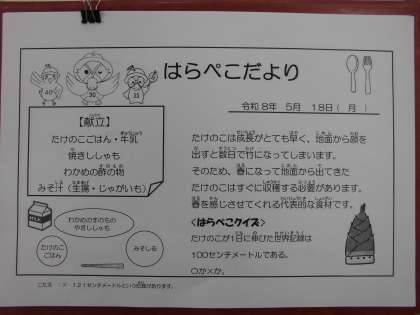 はらぺこだより
令和8年 5月 18日(月)
40 30 35
【献立】
たけのこごはん・牛乳
焼きししゃも
わかめの酢の物
みそ汁(生揚・じゃがいも)
たけのこは成長がとても早く、地面から顔を
出すと数日で竹になってしまいます。
そのため、春になって地面から出てきた
たけのこはすぐに収穫する必要があります。
春を感じさせてくれる代表的な食材です。
わかめのすのもの
やきししゃも
たけのこ
ごはん
みそしる
<はらぺこクイズ>
たけのこが1日に伸びた世界記録は
100センチメートルである。
○か×か。
こたえ:× 121センチメートルという記録があります。